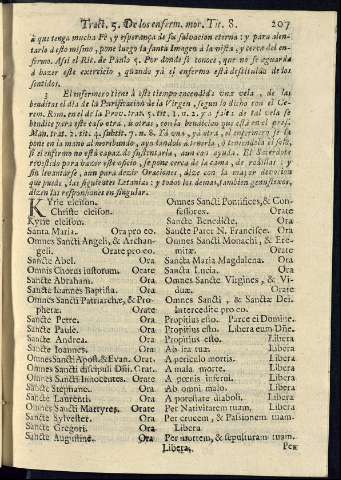 Tract. 5. De los enferm. mor. Tit. 8. 207
à que tenga mucha Fè, y esperança de su salvacion eterna: y para alen-
tarlo desto mismo, pone luego la santa Imagen à la vista, y cerca del en-
fermo. Assi el Rit. de Paulo 5. Por donde se conoce, que no se aguarda
à hazer este exercicio, quando yà el enfermo està destituìdo de los
sentidos.
3 El enfermero tiene à este tiempo encendida una vela, de las
benditas el dia de la Purificacion de la Virgen, segun lo dicho con el Ce-
rem. Rom. en el de la Proc. trat. 5. tit. 1. n. 2. y a falta de tal vela se
bendice para este caso otra, ù otras, con la bendicion que està en el gros.
Man. trat. 2. tit. 4. subtit. 7. n. 8. Tà una, yà otra, el enfermero se la
pone en la mano al moribundo, ayudandole à tenerla, ò teniendola èl solo,
si el enfermo no està capaz de sustentarla, aun con ayuda. El Sacerdote
revestido para hazer este oficio, se pone cerca de la cama, de rodillas: y
sin levantarse, aun para dezir Oraciones, dize con la mayor devocion
que pueda, las siguientes Letanias: y todos los demas, tambien genuflexos,
dizen las responsiones en singular.
KYrie eleison.
Christe eleison.
Kyrie eleison.
Santa Maria. Ora pro eo.
Omnes Sancti Angeli, & Archan-
geli. Orate pro eo.
Sancte Abel. Ora
Omnis Chorus iustorum. Orate
Sancte Abraham. Ora
Sancte Ioannes Baptista. Ora
Omnes Sancti Patriarchæ, & Pro-
phetæ. Orate
Sancte Petre. Ora
Sancte Paule. Ora
Sancte Andrea. Ora
Sancte Ioannes. Ora
Omnes Sancti Apost. & Evan. Orat.
Omnes Sancti discipuli Dñi. Orat.
Omnes Sancti Innocentes. Orate
Sancte Stephane. Ora
Sancte Laurenti. Ora
Omnes Sancti Martyres. Orate
Sancte Sylvester. Ora
Sancte Gregori. Ora
Sancte Augustine. Ora
Omnes Sancti Pontifices, & Con-
fessores. Orate
Sancte Benedicte. Ora
Sancte Pater N. Francisce. Ora
Omnes Sancti Monachi, & Ere-
mitæ. Orate
Sancta Maria Magdalena. Ora
Sancta Lucia. Ora
Omnes Sanctæ Virgines, & Vi-
duæ. Orate
Omnes Sancti, & Sanctæ Dei.
Intercedite pro eo.
Propitius esto. Parce ei Domine.
Propitius esto. Libera eum Dñe.
Propitius esto. Libera
Ab ira tua. Libera
A periculo mortis. Libera
A mala morte. Libera
A pœnis inferni. Libera
Ab omni malo. Libera
A potestate diaboli. Libera
Per Nativitatem tuam. Libera
Per crucem, & Passionem tuam.
Libera
Per mortem, & sepulturam tuam.
Libera. Per